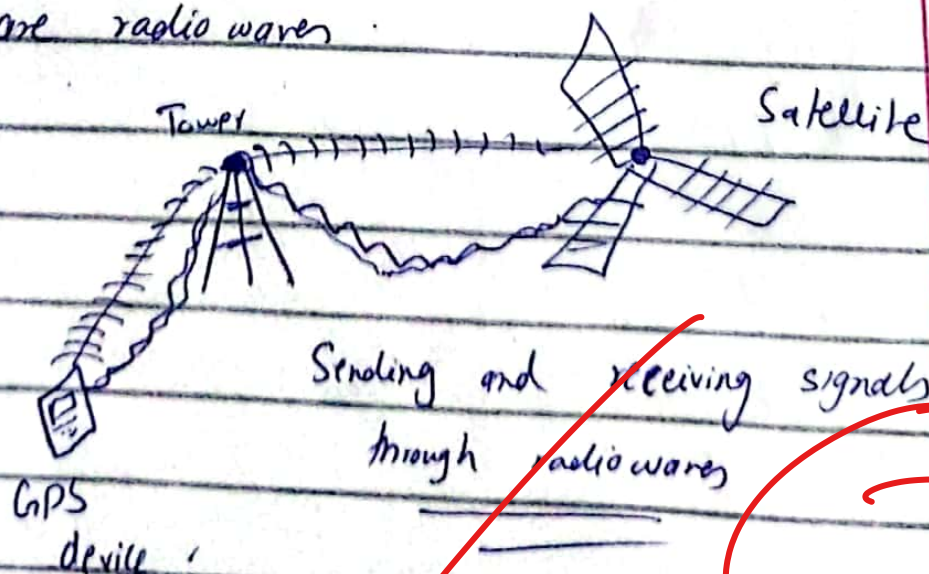 are radio waves.
Tower
Satellite
Sending and receiving signals
through radiowaves
GPS
device.